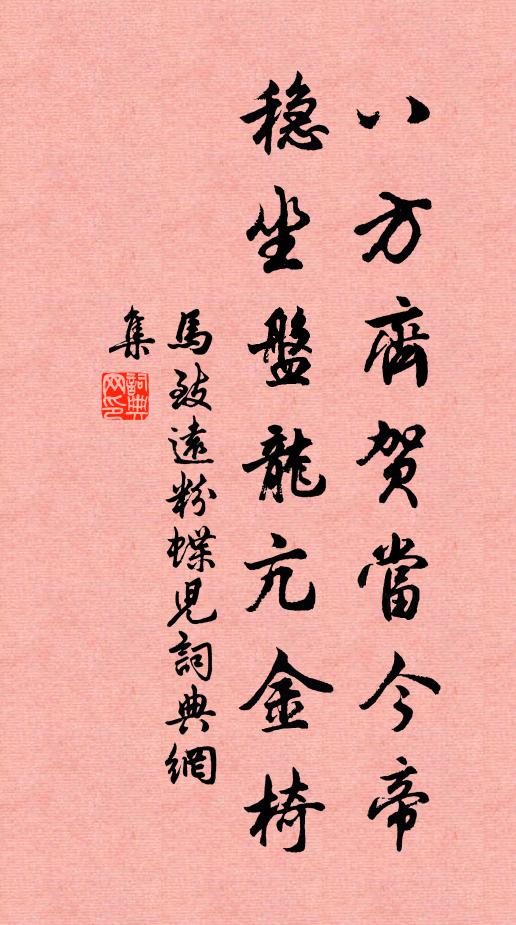 八方齊賀當今帝
穩坐盤龍亢金椅
馬致遠粉蝶兒詞典網
集
詞典網印